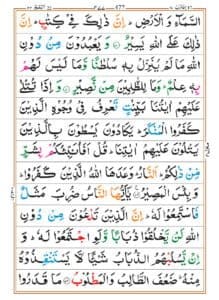 السَّمَآءِ وَ الْاَرْضِ ؕ اِنَّ ذٰلِكَ فِیْ كِتٰبٍ ؕ اِنَّ
ذٰلِكَ عَلَی اللّٰهِ یَسِیْرٌ ۞ وَ یَعْبُدُوْنَ مِنْ دُوْنِ
اللّٰهِ مَا لَمْ یُنَزِّلْ بِهٖ سُلْطٰنًا وَّ مَا لَیْسَ لَهُمْ
بِهٖ عِلْمٌ ؕ وَ مَا لِلظّٰلِمِیْنَ مِنْ نَّصِیْرٍ ۞ وَ اِذَا تُتْلٰی
عَلَیْهِمْ اٰیٰتُنَا بَیِّنٰتٍ تَعْرِفُ فِیْ وُجُوْهِ الَّذِیْنَ
كَفَرُوا الْمُنْكَرَ ؕ یَكَادُوْنَ یَسْطُوْنَ بِالَّذِیْنَ
یَتْلُوْنَ عَلَیْهِمْ اٰیٰتِنَا ؕ قُلْ اَفَاُنَبِّئُكُمْ بِشَرٍّ
مِّنْ ذٰلِكُمْ ؕ اَلنَّارُ ؕ وَعَدَهَا اللّٰهُ الَّذِیْنَ كَفَرُوْا ؕ
وَ بِئْسَ الْمَصِیْرُ ۞ یٰۤاَیُّهَا النَّاسُ ضُرِبَ مَثَلٌ
فَاسْتَمِعُوْا لَهٗ ؕ اِنَّ الَّذِیْنَ تَدْعُوْنَ مِنْ دُوْنِ
اللّٰهِ لَنْ یَّخْلُقُوْا ذُبَابًا وَّ لَوِ اجْتَمَعُوْا لَهٗ ؕ وَ
اِنْ یَّسْلُبْهُمُ الذُّبَابُ شَیْـًٔا لَّا یَسْتَنْقِذُوْهُ
مِنْهُ ؕ ضَعُفَ الطَّالِبُ وَ الْمَطْلُوْبُ ۞ مَا قَدَرُوا